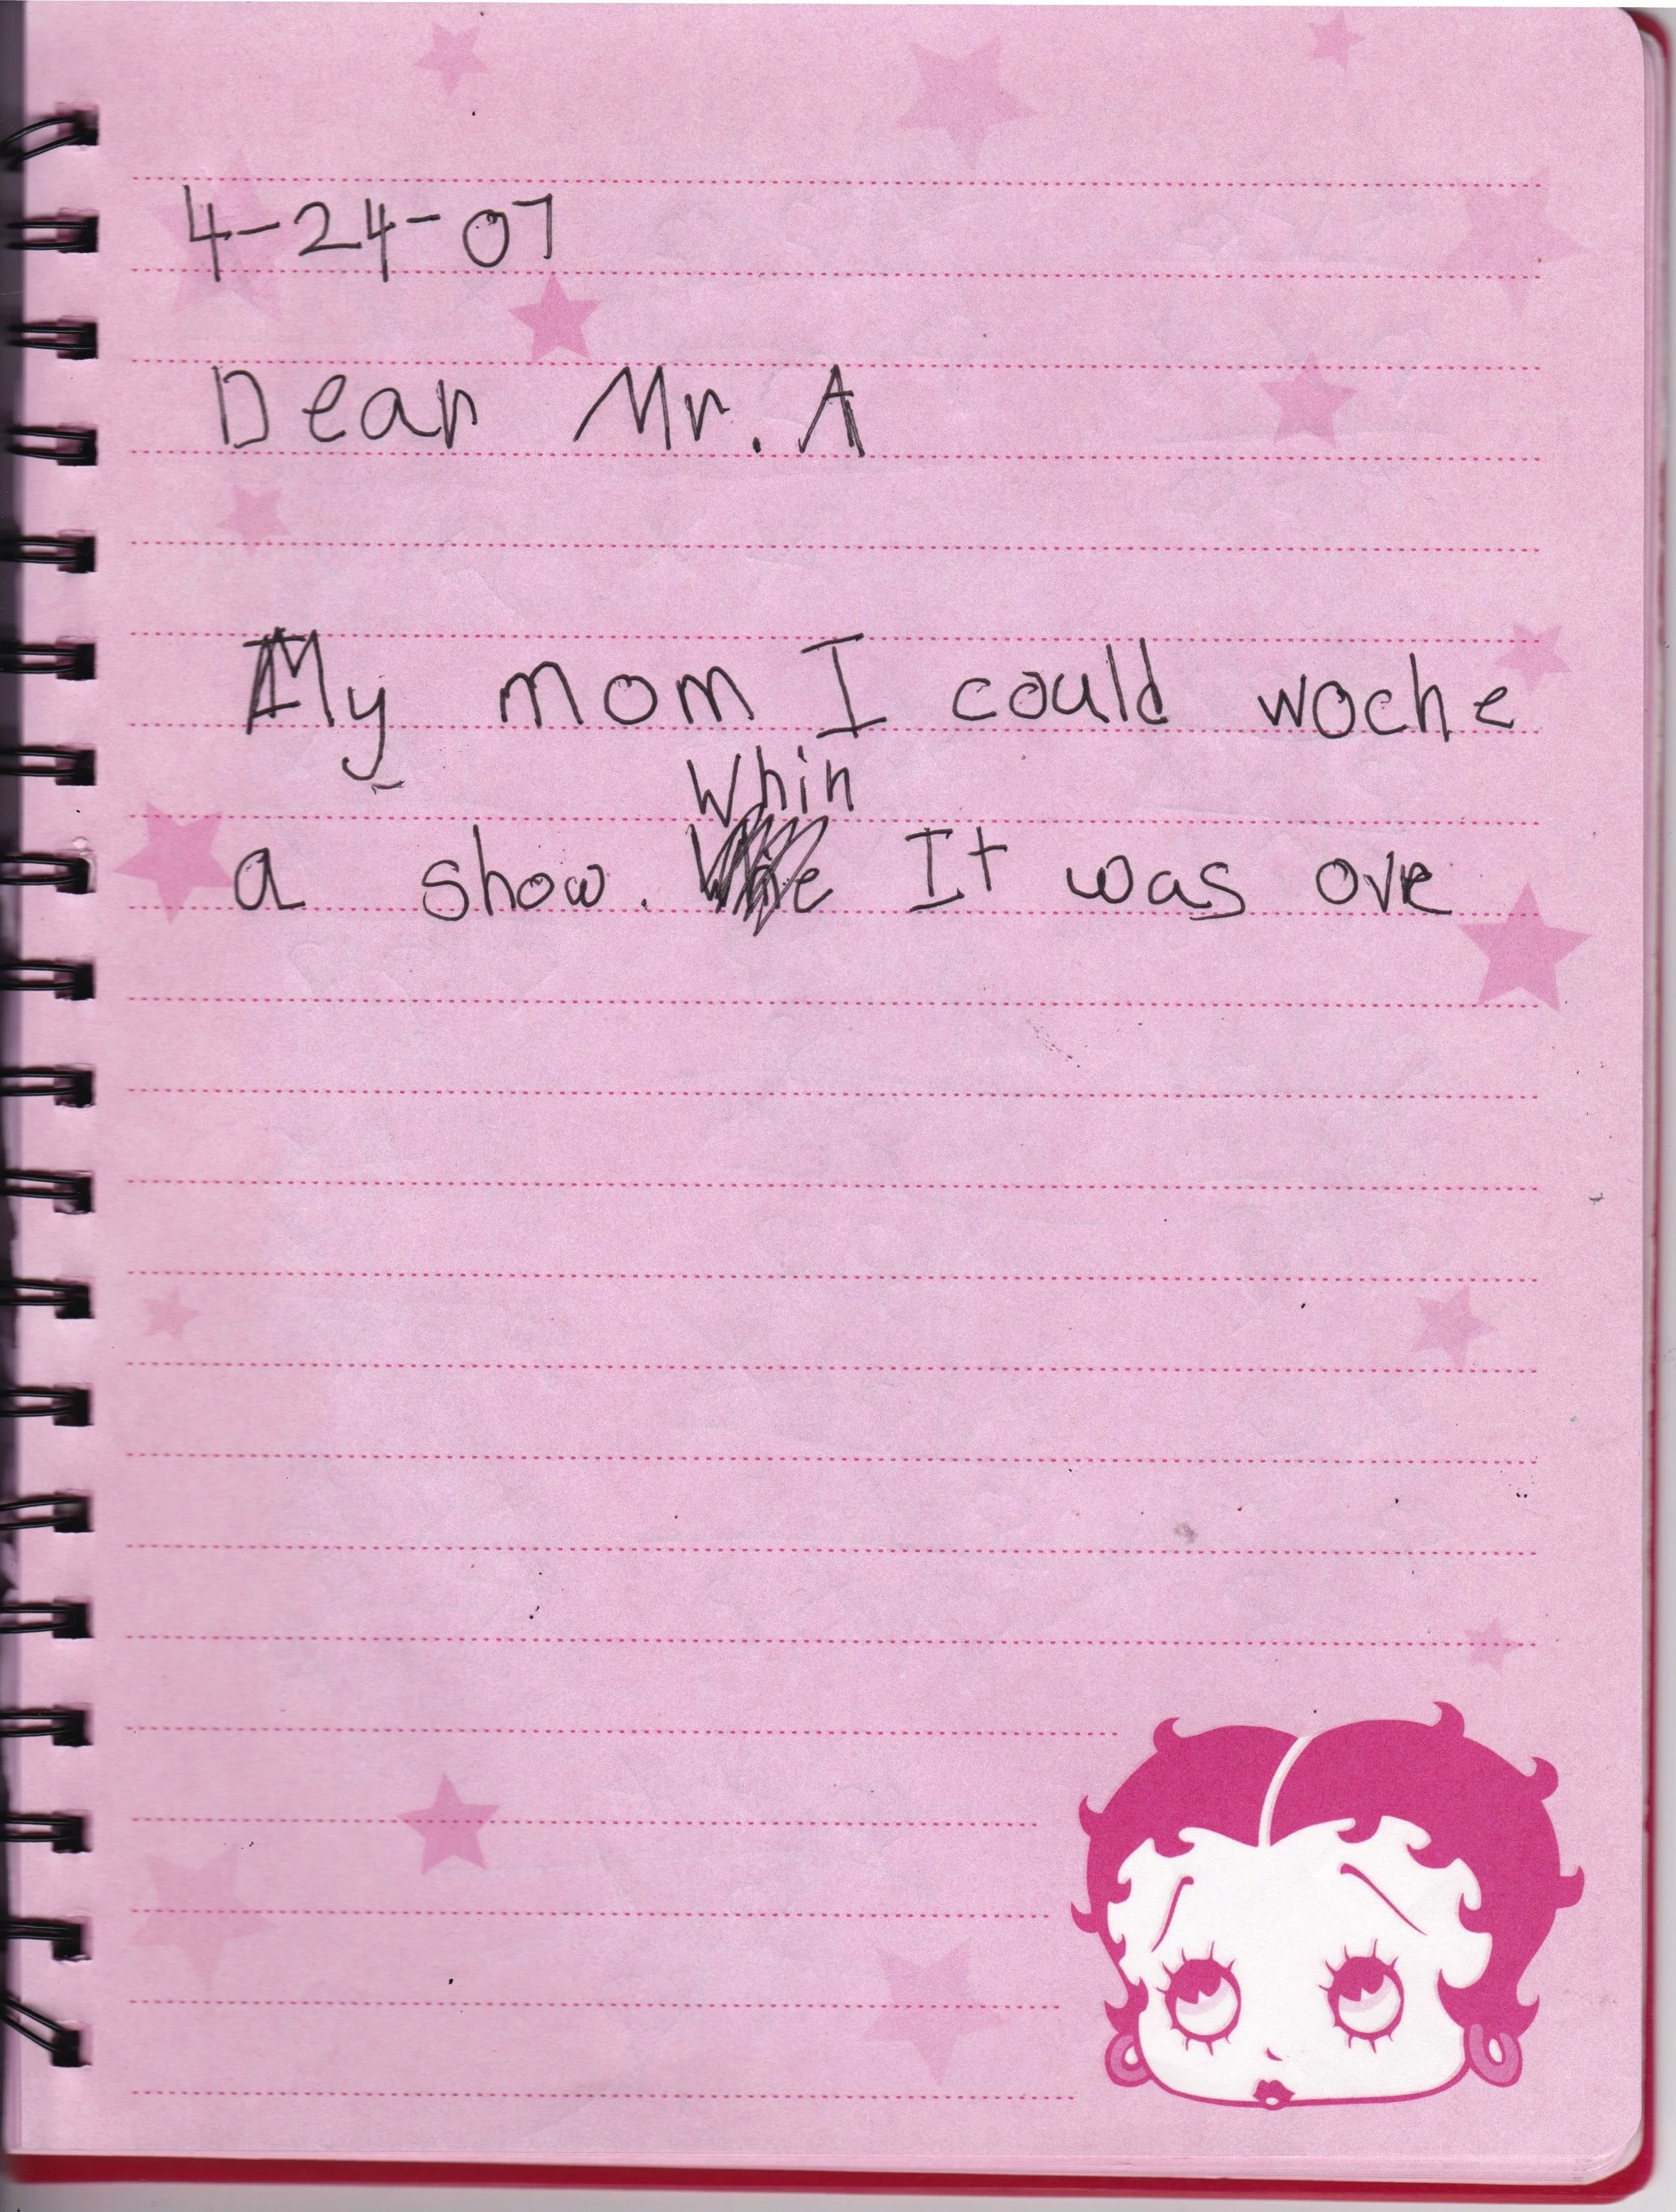 4-24-07
Dear Mr. A
My mom I could woche
Whin
a show. It was ove